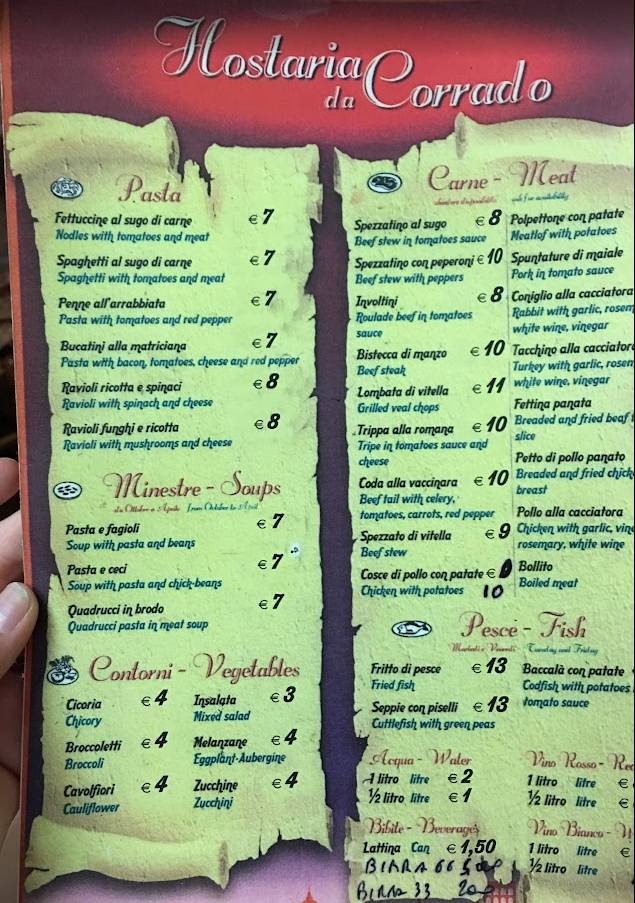 Hostaria
da Corrado
Pasta
Fettuccine al sugo di carne € 7
Nodles with tomatoes and meat
Spaghetti al sugo di carne € 7
Spaghetti with tomatoes and meat
Penne all'arrabbiata € 7
Pasta with tomatoes and red pepper
Bucatini alla matriciana € 7
Pasta with bacon, tomatoes, cheese and red pepper
Ravioli ricotta e spinaci € 8
Ravioli with spinach and cheese
Ravioli funghi e ricotta € 8
Ravioli with mushrooms and cheese
Minestre - Soups
da Ottobre a Aprile from October to April
Pasta e fagioli € 7
Soup with pasta and beans
Pasta e ceci € 7
Soup with pasta and chick-beans
Quadrucci in brodo € 7
Quadrucci pasta in meat soup
Contorni - Vegetables
Cicoria € 4
Chicory
Broccoletti € 4
Broccoli
Cavolfiori € 4
Cauliflower
Insalata € 3
Mixed salad
Melanzane € 4
Eggplant-Aubergine
Zucchine € 4
Zucchini
Carne - Meat
ask for availability
Spezzatino al sugo € 8
Beef stew in tomatoes sauce
Spezzatino con peperoni € 10
Beef stew with peppers
Involtini € 8
Roulade beef in tomatoes
sauce
Bistecca di manzo € 10
Beef steak
Lombata di vitella € 11
Grilled veal chops
Trippa alla romana € 10
Tripe in tomatoes sauce and
cheese
Coda alla vaccinara € 10
Beef tail with celery,
tomatoes, carrots, red pepper
Spezzato di vitella € 9
Beef stew
Cosce di pollo con patate €
Chicken with potatoes 10
Polpettone con patate
Meatlof with potatoes
Spuntature di maiale
Pork in tomato sauce
Coniglio alla cacciatora
Rabbit with garlic, rosem
white wine, vinegar
Tacchino alla cacciator
Turkey with garlic, rosem
white wine, vinegar
Fettina panata
Breaded and fried beaf
slice
Petto di pollo panato
Breaded and fried chick
breast
Pollo alla cacciatora
Chicken with garlic, vin
rosemary, white wine
Bollito
Boiled meat
Pesce - Fish
Martedì e Venerdì Tuesday and Friday
Fritto di pesce € 13
Fried fish
Seppie con piselli € 13
Cuttlefish with green peas
Baccalà con patate
Codfish with potatoes
tomato sauce
Acqua - Water
1 litro litre € 2
½ litro litre € 1
Bibite - Beverages
Lattina Can € 1,50
BIRRA 66
BIRRA 33
Vino Rosso - Re
1 litro litre €
½ litro litre €
Vino Bianco - W
1 litro litre €
½ litro litre €